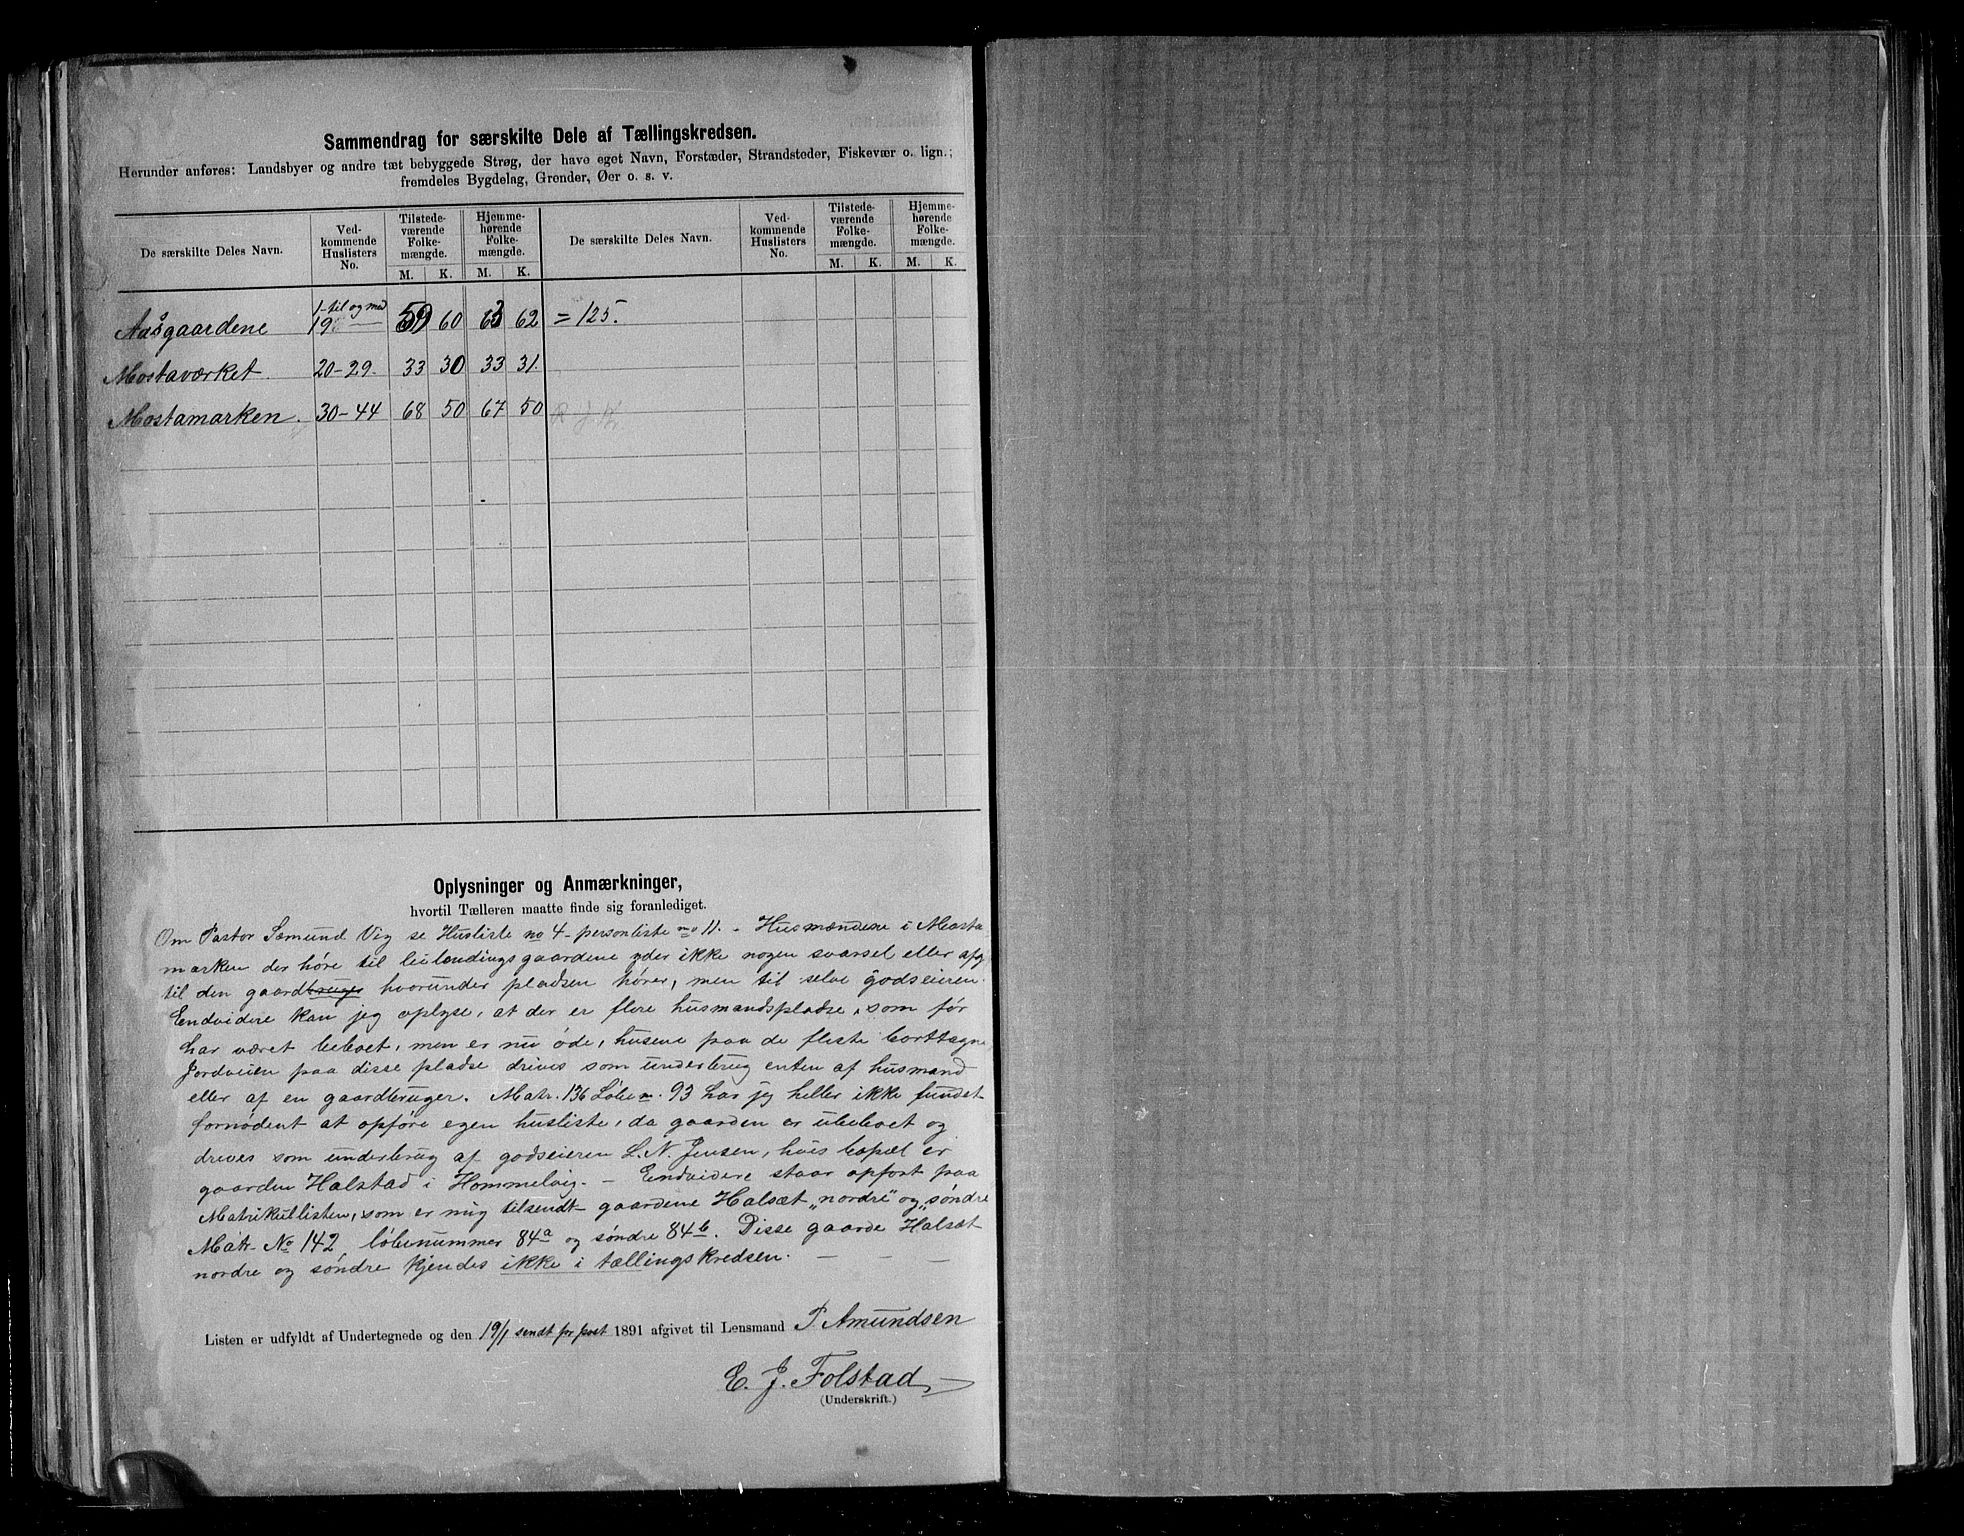 Sammendrag for særskilte Dele af Tællingskredsen.
Herunder anføres: Landsbyer og andre tæt bebyggede Strøg, der have eget Navn, Forstæder, Strandsteder, Fiskevær o. lign.;
fremdeles Bygdelag, Grender, Øer o. s. v.
De særskilte Deles Navn. Ved-kommende Huslisters No. Tilstede-værende Folke-mængde. Hjemme-hørende Folke-mængde. De særskilte Deles Navn. Ved-kommende Huslisters No. Tilstede-værende Folke-mængde. Hjemme-hørende Folke-mængde.
M. K. M. K. M. K. M. K.
Aasgaardene 1- til og med 19 59 60 63 62 = 125.
Mostaværket 20-29. 33 30 33 31.
Mostamarken. 30-44 68 50 67 50
Oplysninger og Anmærkninger,
hvortil Tælleren maatte finde sig foranlediget.
Om Pastor Semund Vig se Husliste no 4 - personliste no 11. - Husmændene i Mosta
marken der høre til leilendingsgaardene yder ikke nogen svarsel eller afg
til den gaardbruger hvorunder pladsen hører, men til selve godseieren.
Endvidere kan jeg oplyse, at der er flere husmandspladse, som før
har været beboet, men er nu øde, husene paa de fleste borttagne
Jordveien paa disse pladse drives som underbrug enten af husmand
eller af en gaardbruger. Matr. 136 Løben. 93 har jeg heller ikke fundet
fornødent at opføre egen husliste, da gaarden er ubeboet og
drives som underbrug af godseieren L. N. Jensen, hvis bopæl er
gaarden Halstad i Hommelvig. - Endvidere staar opført paa
Matrikullisten, som er mig tilsendt gaardene Halsæt "nordre" og "søndre
Matr. No 142, løbenummer 84a og søndre 84b. Disse gaarde Halsæt
nordre og søndre kjendes ikke i tællingskredsen. — — —
Listen er udfyldt af Undertegnede og den 19/1 sendt pr post 1891 afgivet til Lensmand P. Amundsen
E. J. Folstad
(Underskrift.)